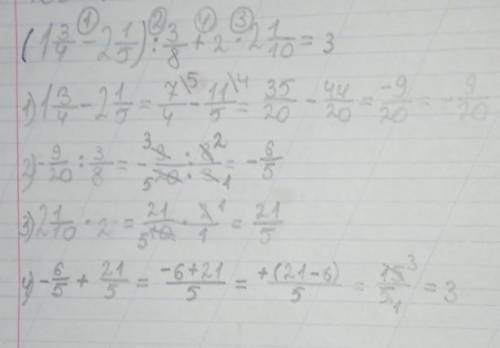 (1 3/4 ① - 2 1/5) ② : 3/8 ④ + 2 ③ · 2 1/10 = 3
1) 1 3/4 - 2 1/5 = 7\5/4 - 11\4/5 = 35/20 - 44/20 = -9/20 = - 9/20
2) - 9/20 : 3/8 = - 9 3/20 5 : 8 2/3 1 = - 6/5
3) 2 1/10 · 2 = 21/10 5 · 2 1/1 = 21/5
4) - 6/5 + 21/5 = -6+21/5 = +(21-6)/5 = 15 3/5 1 = 3